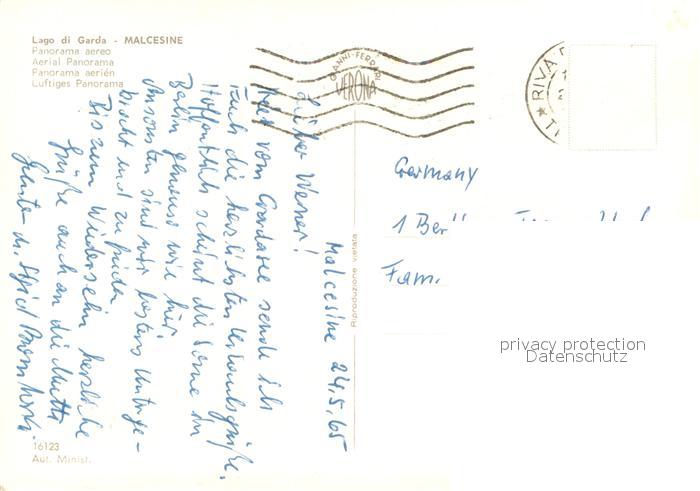 Lago di Garda - MALCESINE
Panorama aereo
Aerial Panorama
Panorama aerién
Luftiges Panorama
GIANNI FERRARI
VERONA
★ RIVA
Malcesine 24.5.65
Lieber Werner!
vom Gardasee sende ich
Euch die herzlichsten Urlaubsgrüße.
Hoffentlich scheint die Sonne in
Berlin genauso wie hier.
Ansonsten sind wir bestens unterge-
bracht und zufrieden
Bis zum Wiedersehn herzliche
Grüße auch an die Mutti
Günter u.
Germany
1 Ber
Fam.
Riproduzione vietata
privacy protection
Datenschutz
16123
Aut. Minist.